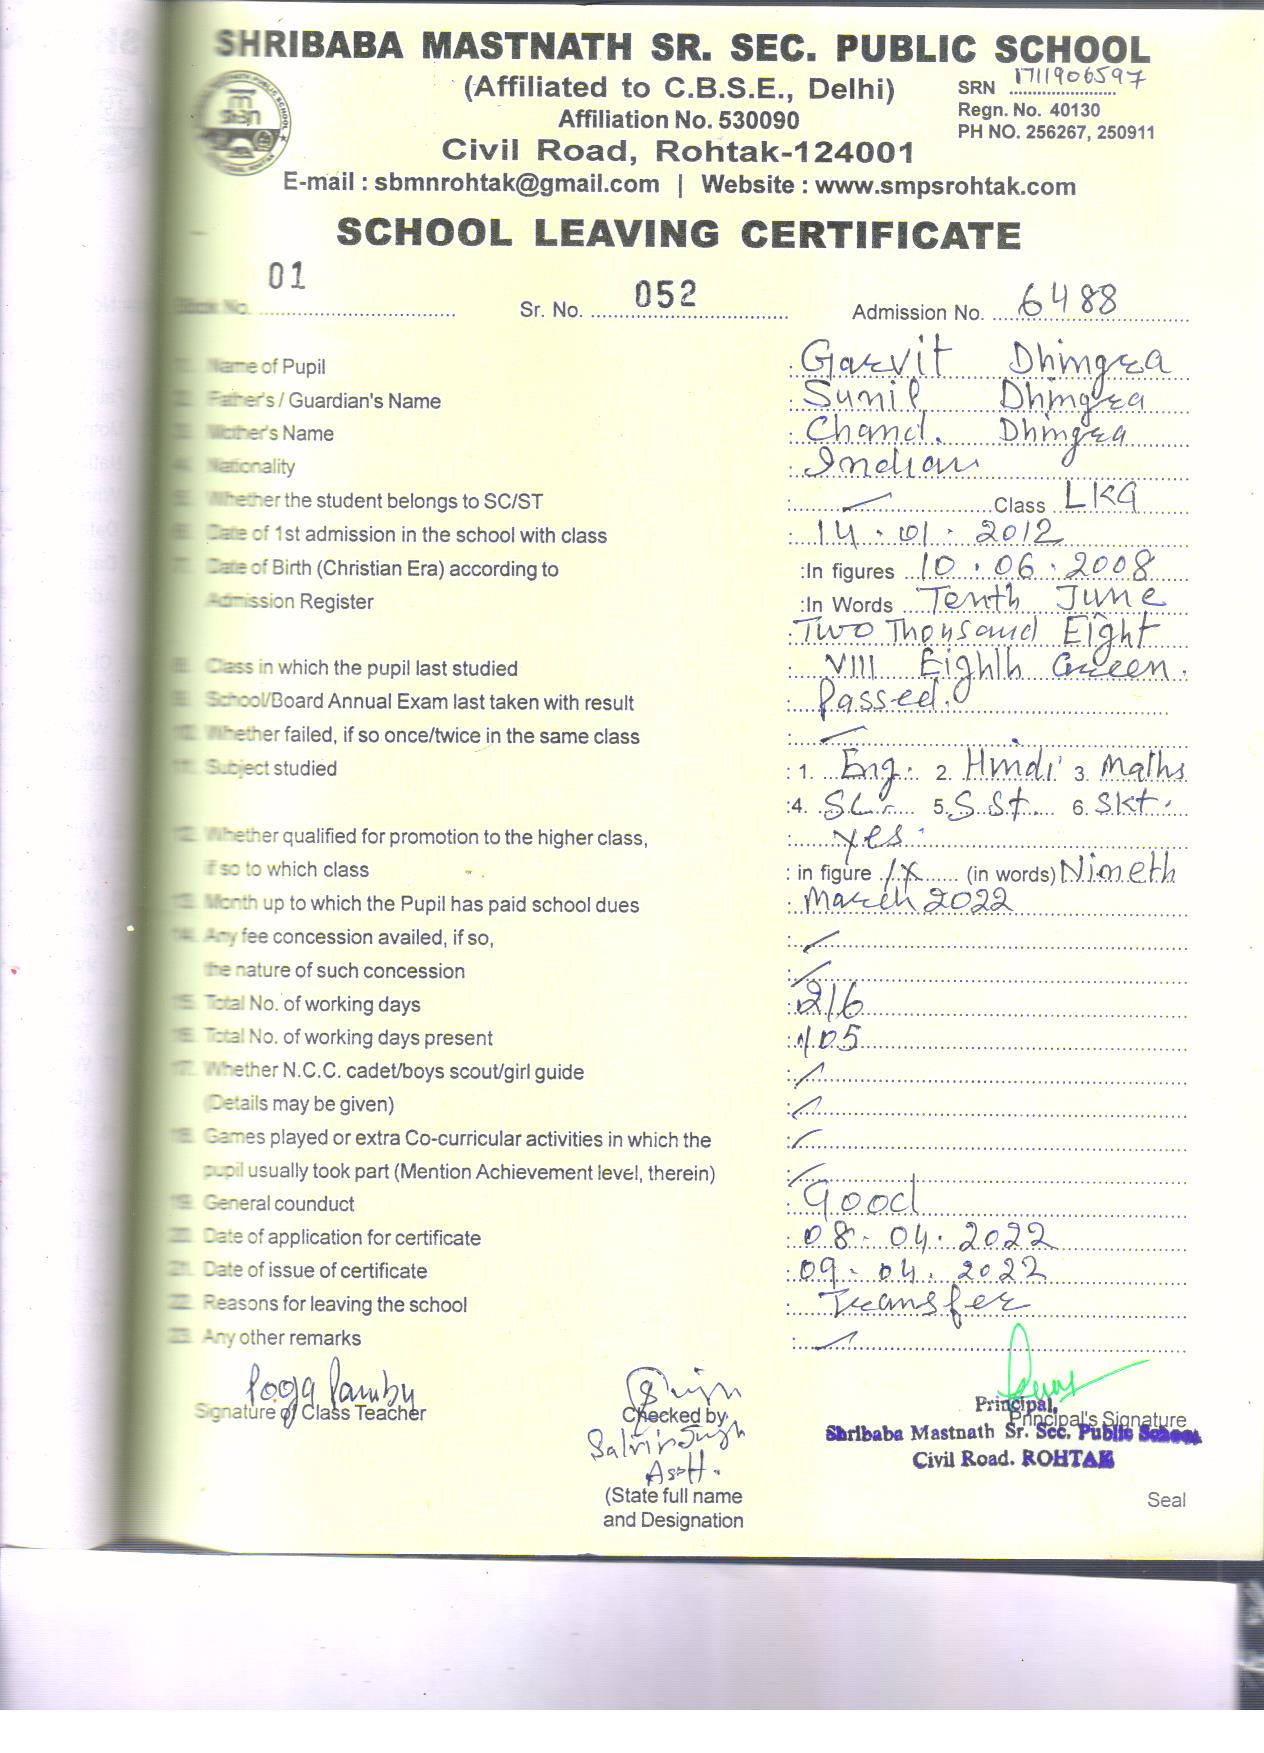 SHRIBABA MASTNATH SR. SEC. PUBLIC SCHOOL
(Affiliated to C.B.S.E., Delhi)
SRN 1711906597
Affiliation No. 530090
Regn. No. 40130
PH NO. 256267, 250911
Civil Road, Rohtak-124001
E-mail : sbmnrohtak@gmail.com | Website : www.smpsrohtak.com
SCHOOL LEAVING CERTIFICATE
Book No. 01 Sr. No. 052 Admission No. 6488
1. Name of Pupil : Garvit Dhingra
2. Father's / Guardian's Name : Sunil Dhingra
3. Mother's Name : Chand. Dhingra
4. Nationality : Indian
5. Whether the student belongs to SC/ST : Class LKG
6. Date of 1st admission in the school with class : 14.01.2012
7. Date of Birth (Christian Era) according to :In figures 10.06.2008
Admission Register :In Words Tenth June
: Two Thousand Eight
8. Class in which the pupil last studied : VIII Eighth Green.
9. School/Board Annual Exam last taken with result : Passed.
10. Whether failed, if so once/twice in the same class :
11. Subject studied : 1. Eng. 2. Hindi 3. Maths
:4. SC. 5. S.St 6. Skt.
12. Whether qualified for promotion to the higher class, : yes
if so to which class : in figure IX (in words) Nineth
13. Month up to which the Pupil has paid school dues : March 2022
14. Any fee concession availed, if so, :
the nature of such concession :
15. Total No. of working days : 216
16. Total No. of working days present : 105
17. Whether N.C.C. cadet/boys scout/girl guide :
(Details may be given) :
18. Games played or extra Co-curricular activities in which the :
pupil usually took part (Mention Achievement level, therein) :
19. General counduct : Good
20. Date of application for certificate : 08.04.2022
21. Date of issue of certificate : 09.04.2022
22. Reasons for leaving the school : Transfer
23. Any other remarks :
Signature of Class Teacher
Checked by
Principal,
Principal's Signature
Shribaba Mastnath Sr. Sec. Public School
Civil Road. ROHTAK
Asstt.
(State full name
and Designation
Seal